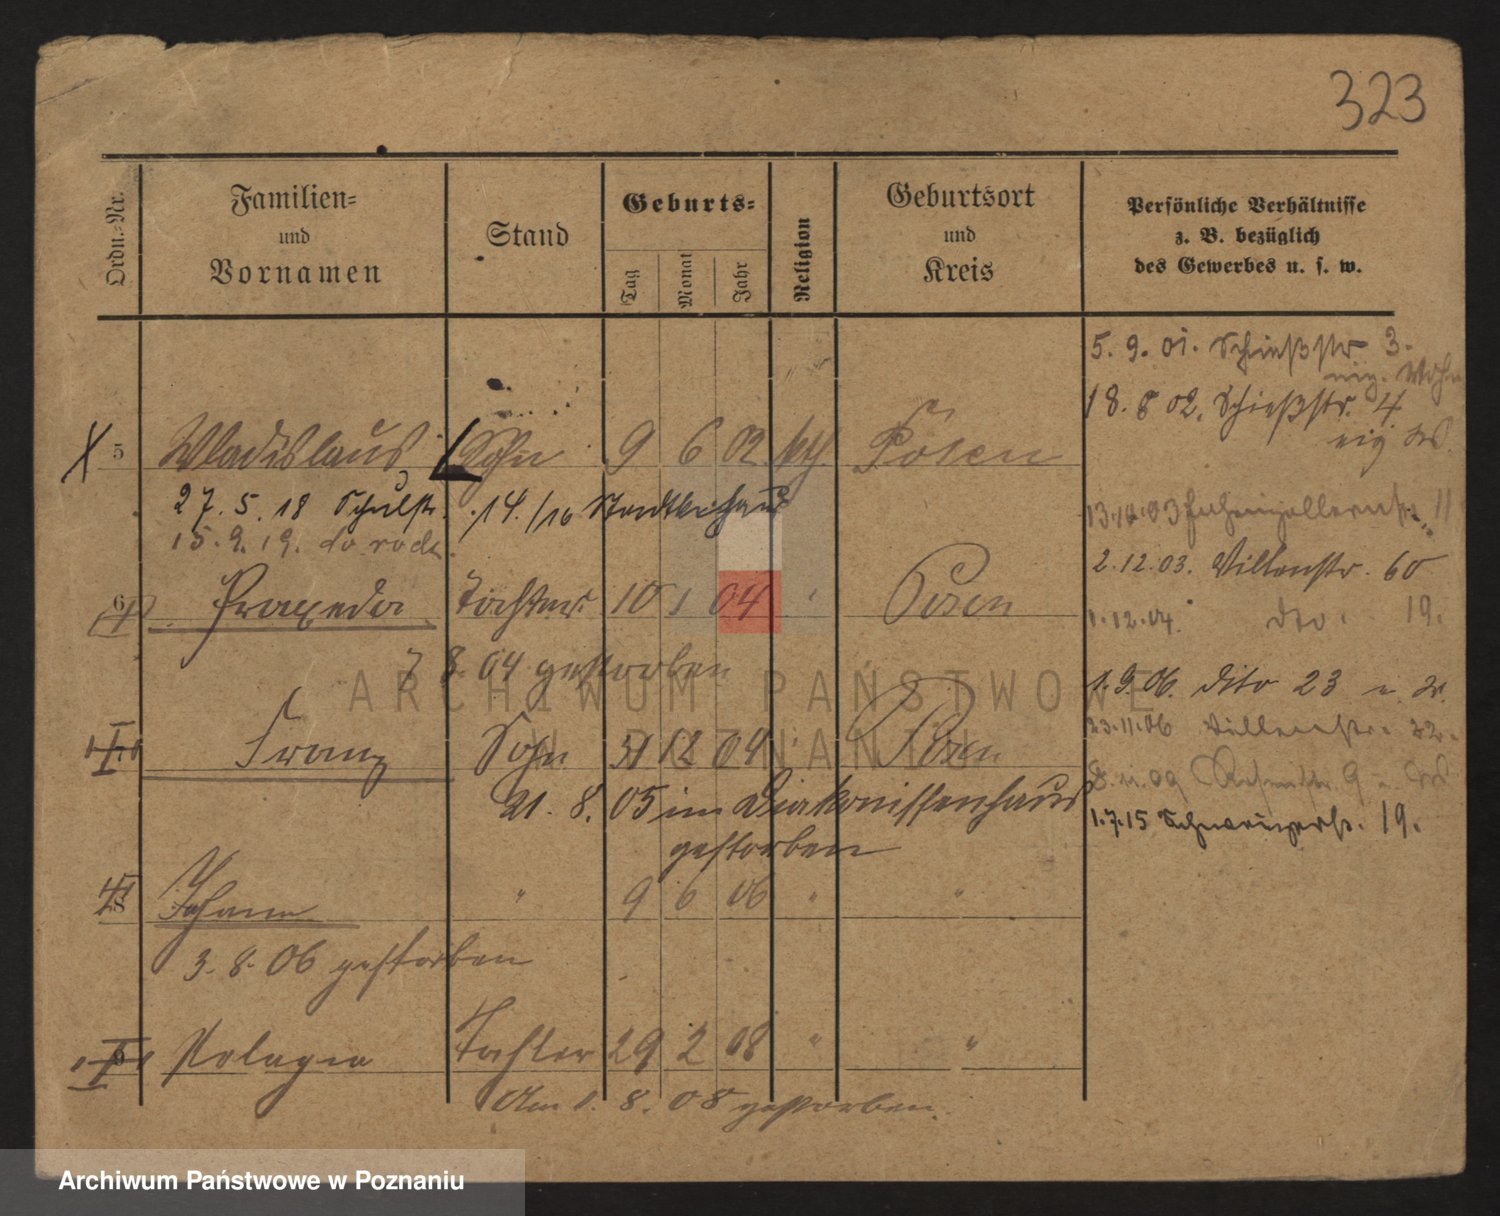 323
Ordn.-Nr.
Familien-
und
Vornamen
Stand
Geburts-
Tag
Monat
Jahr
Religion
Geburtsort
und
Kreis
Persönliche Verhältnisse
z. B. bezüglich
des Gewerbes u. s. w.
5. 9. 01. Schießstr 3.
18. 8 02. Schießstr. 4
5 Wladislaus Sohn 9 6 02 kth. Posen
27. 5. 18 Schulstr. 14./16 Stadtkrhaus
15. 9. 19. do
13.10.03 Hohenzollernstr. 11
2. 12. 03. Villenstr. 60
6 Praxeda Tochter 10 1 04 " Posen
1. 12. 04. dto. 19.
7 8. 04 gestorben
1. 9. 06. dito 23
Franz Sohn 31 12 04 " Posen
23. 11. 06 Villenstr. 22.
21. 8. 05 im Diakonissenhaus
gestorben
8. 11. 09 9
1. 7. 15 19.
Johann " 9 6 06 " "
3. 8. 06 gestorben
Pelagia Tochter 29 2 08 " "
Am 1. 8. 08 gestorben.
ARCHIWUM PAŃSTWOWE
W POZNANIU
Archiwum Państwowe w Poznaniu